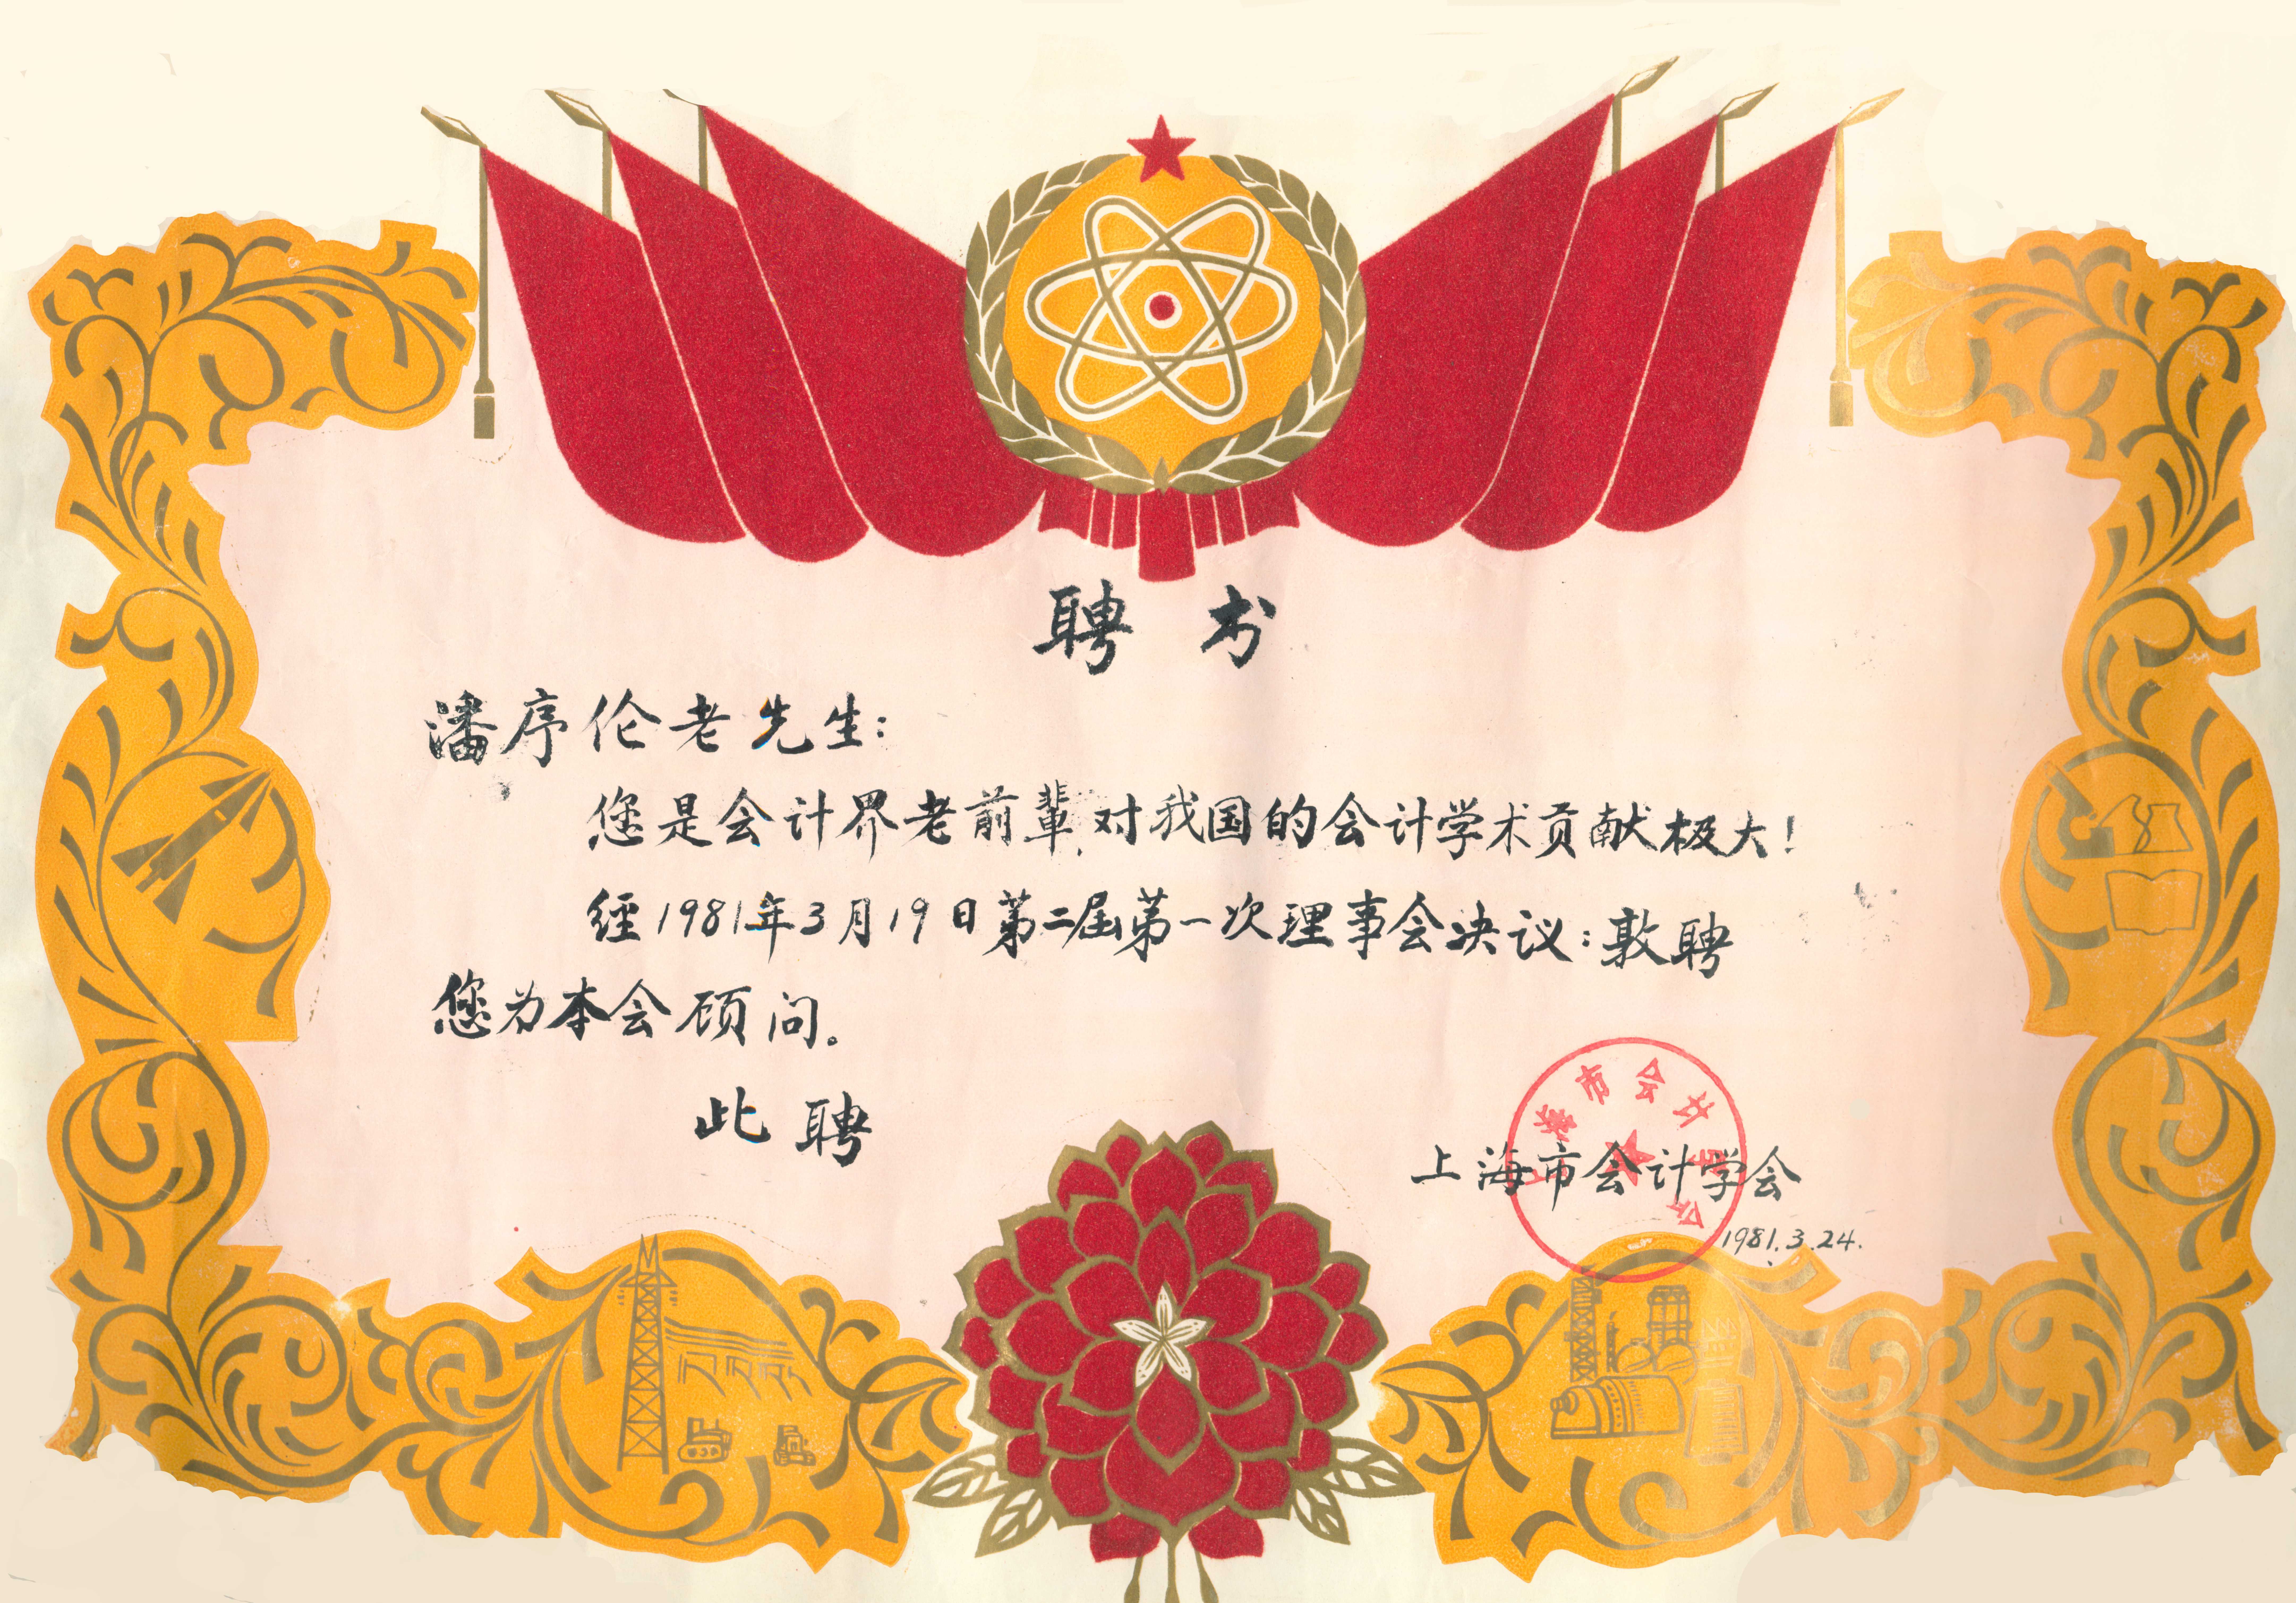 聘书
潘序伦老先生：
您是会计界老前輩，对我国的会计学术贡献极大！
经1981年3月19日第二届第一次理事会决议：敦聘
您为本会顾问。
此聘
上海市会计学会
上海市会计学会
1981.3.24.